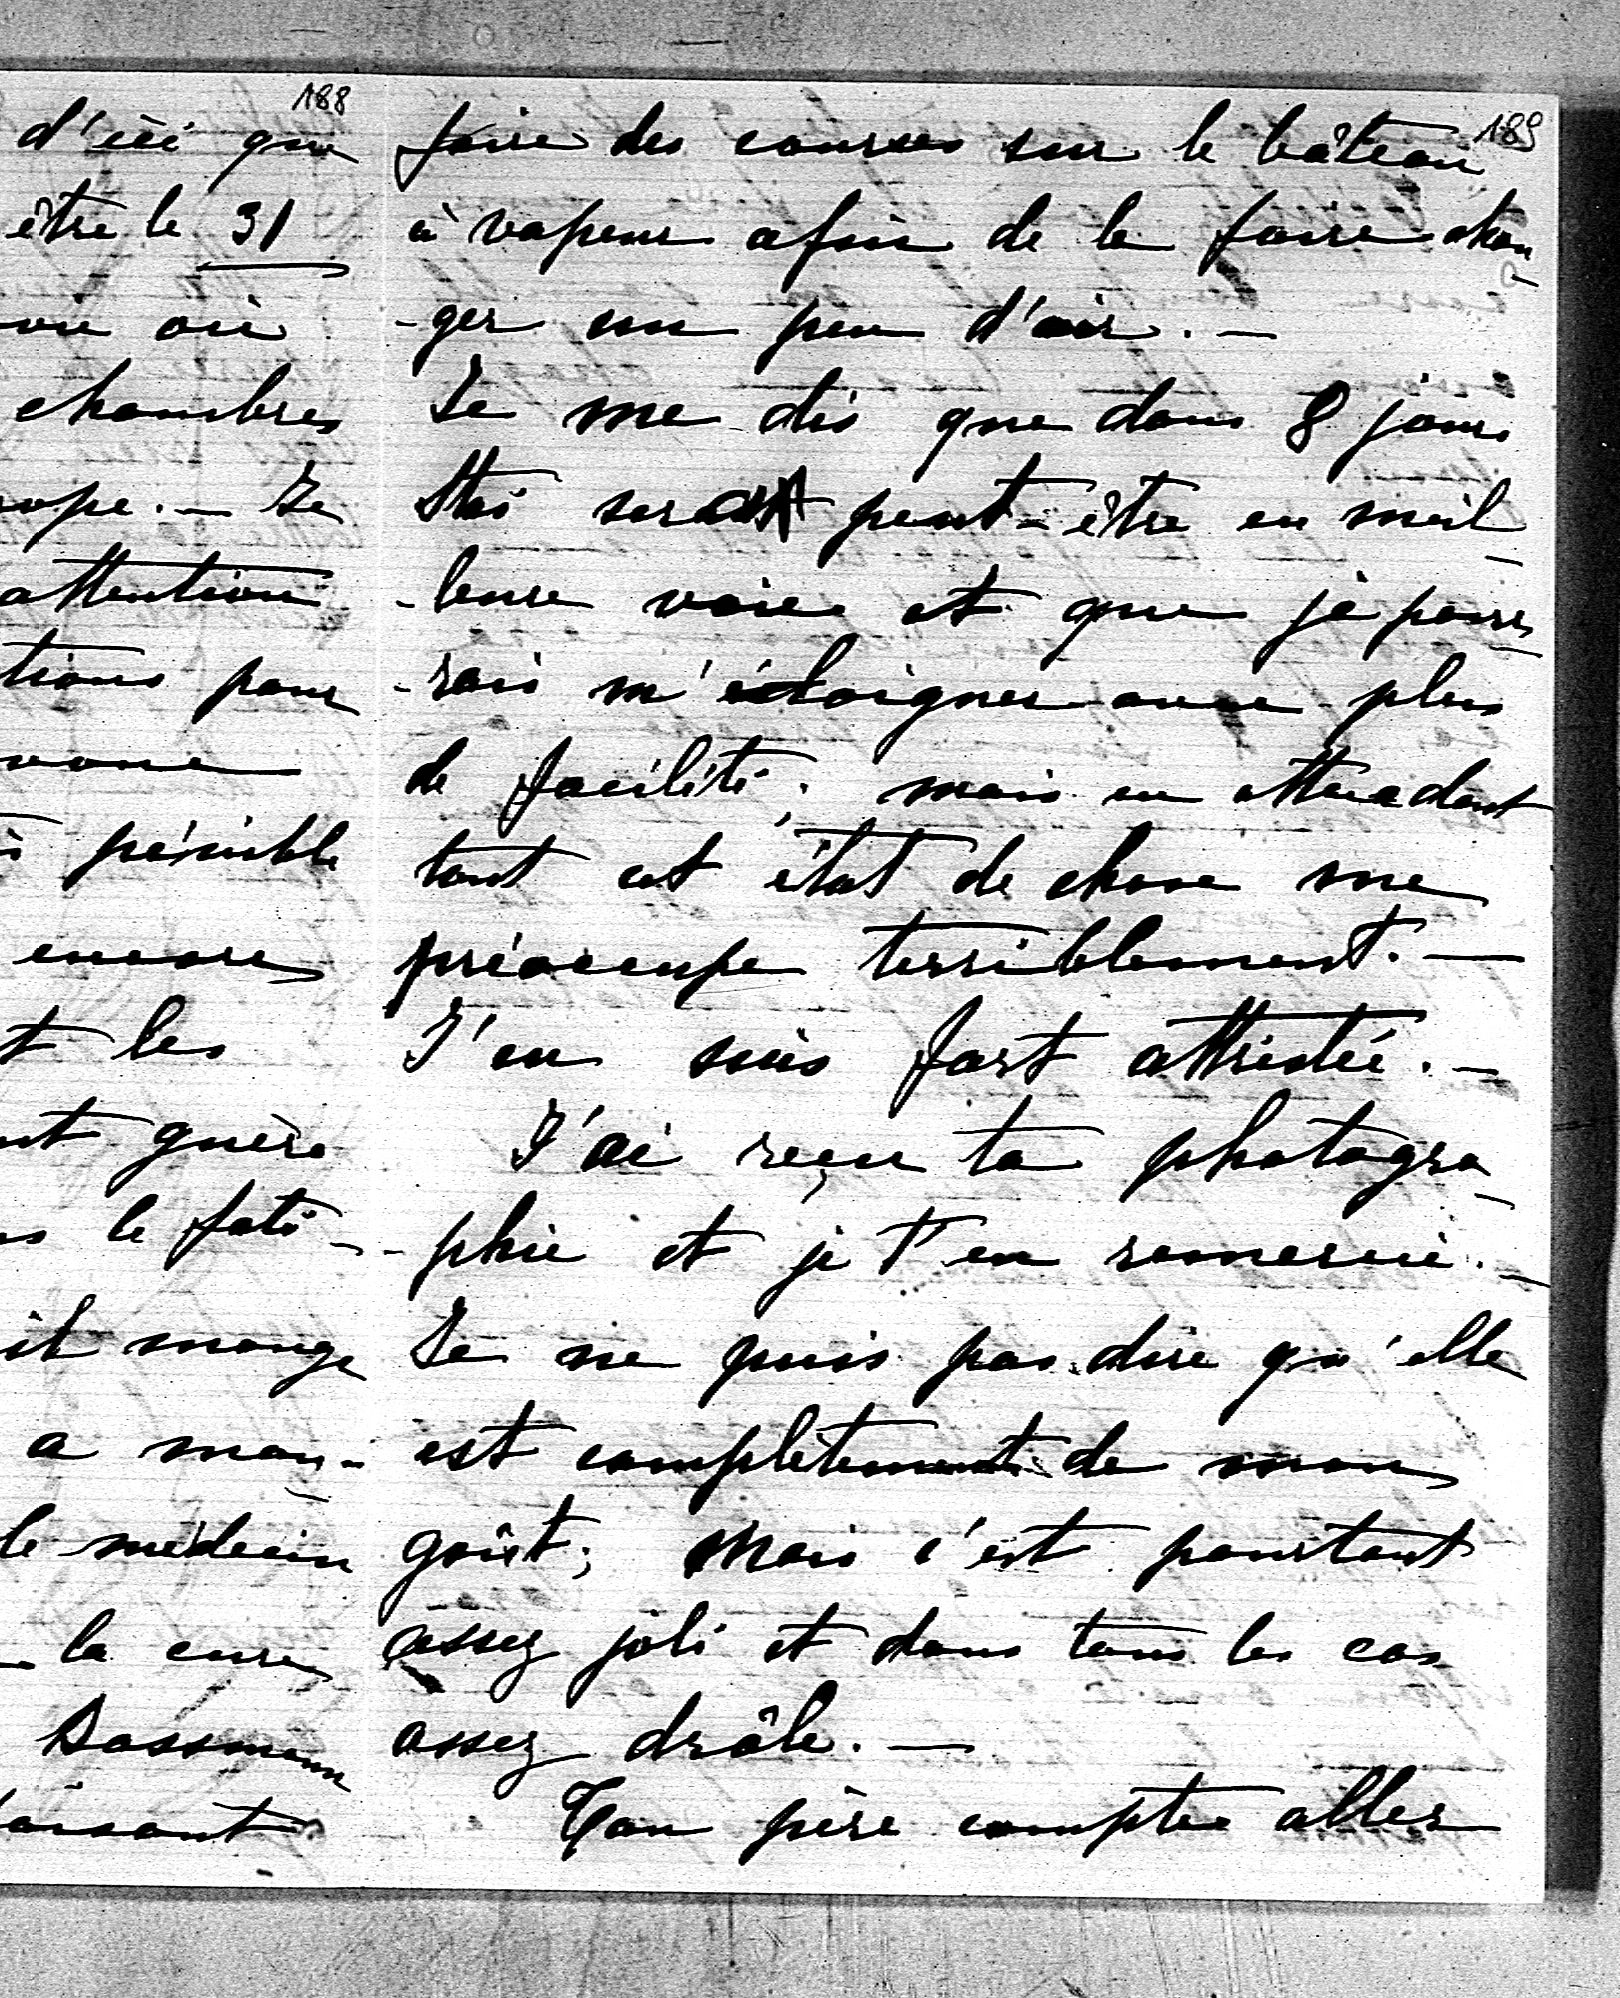 188
d'ici que
être le 31
où
chambres
rope. — Je
attention
tions pour
pénible
encore
t les
nt guère
le fati-
il mange
a man-
le médecin
la cure
Sassmann
faisant
189
faire des courses sur le bâteau
à vapeur afin de le faire chan-
-ger un peu d'air. —
Je me dis que dans 8 jours
Sta sera peut-être en meil-
-leure voie et que je pour-
-rais m'éloigner avec plus
de facilité; mais en attendant
tout cet état de chose me
préoccupe terriblement. —
J'en suis fort attristée. —
J'ai reçu ta photogra-
-phie et je t'en remercie. —
Je ne puis pas dire qu'elle
est complètement de mon
goût; mais c'est pourtant
assez joli et dans tous les cas
assez drôle. —
Ton père compte aller